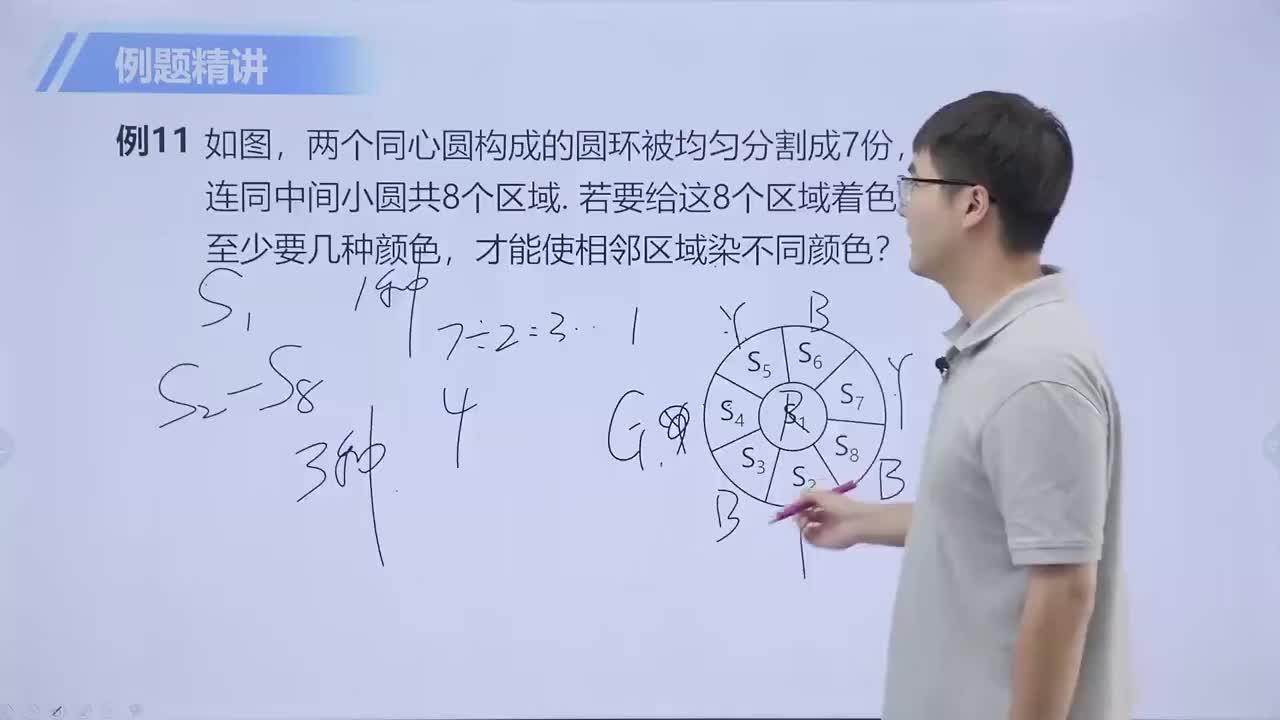 例题精讲
例11 如图，两个同心圆构成的圆环被均匀分割成7份，
连同中间小圆共8个区域. 若要给这8个区域着色
至少要几种颜色，才能使相邻区域染不同颜色？
S₁ 1种
7÷2=3…1
S₂—S₈
3种
4
Y B
S₅ S₆
Y
S₇
G
S₄ R S₁
S₃ S₂ S₈
B B